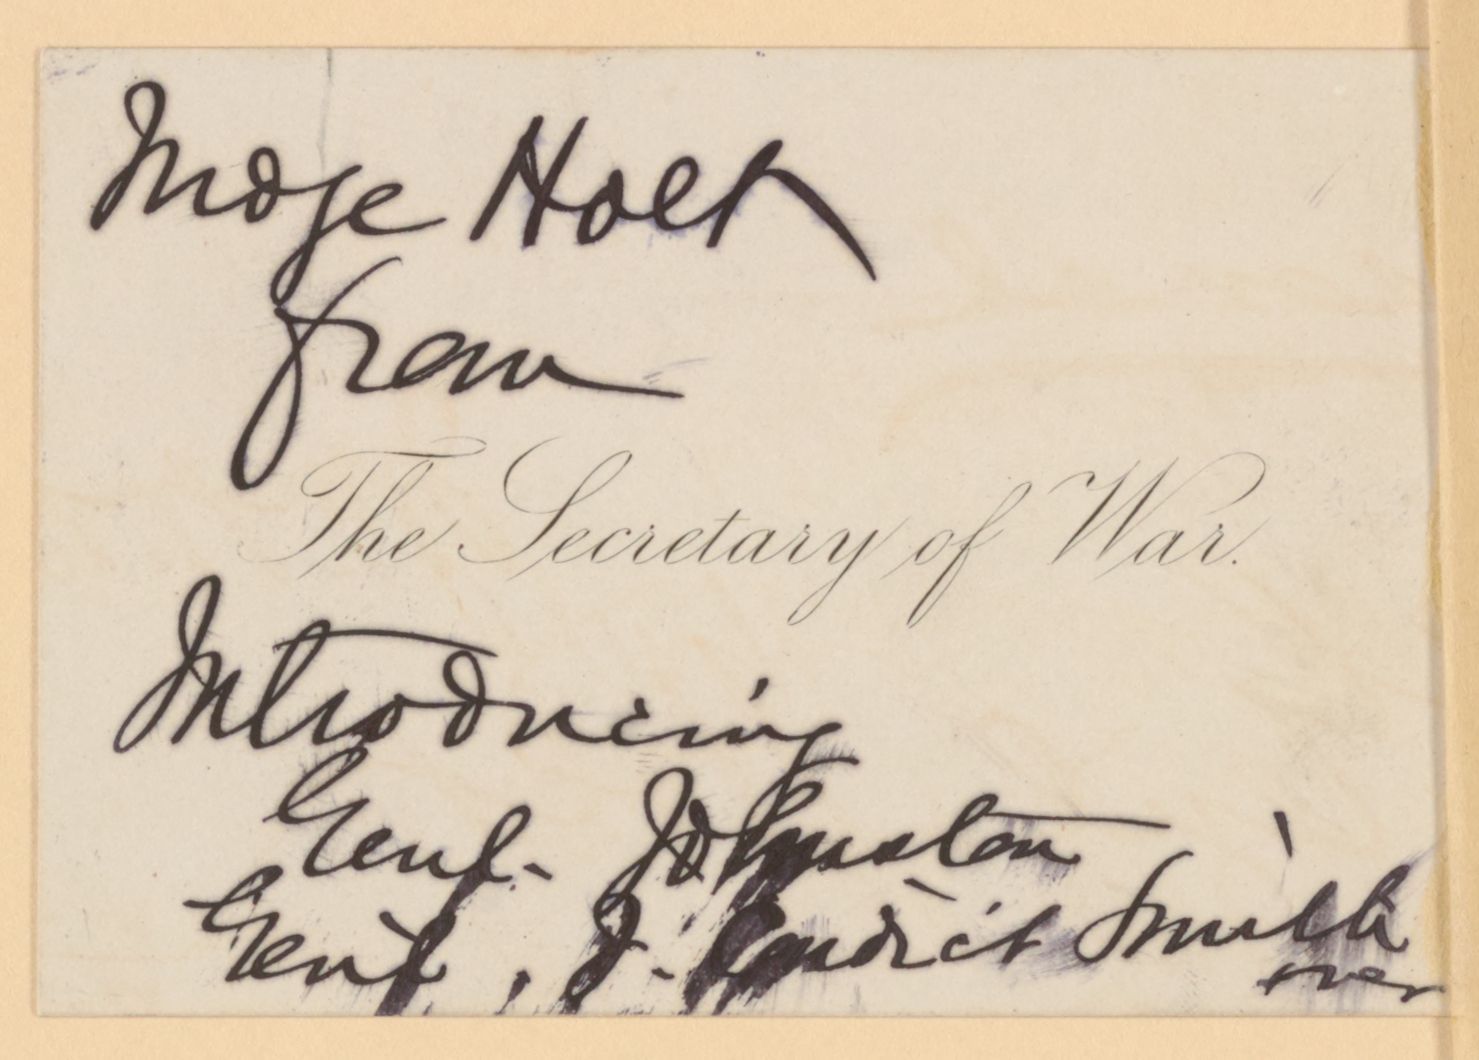 Judge Holt
from
The Secretary of War.
Introducing
Genl. Johnston
Genl. J. Smith
over